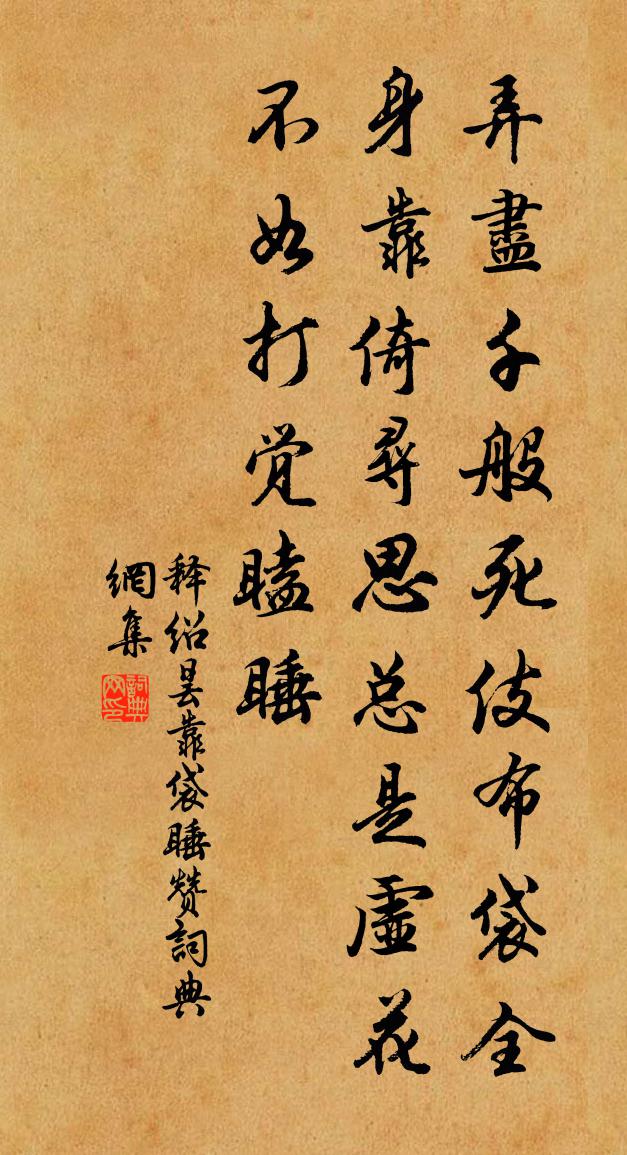 弄盡千般死伎布袋全
身靠倚尋思总是虛花
不如打觉瞌睡
释绍昙靠袋睡赞詞典
網集
詞典
网印